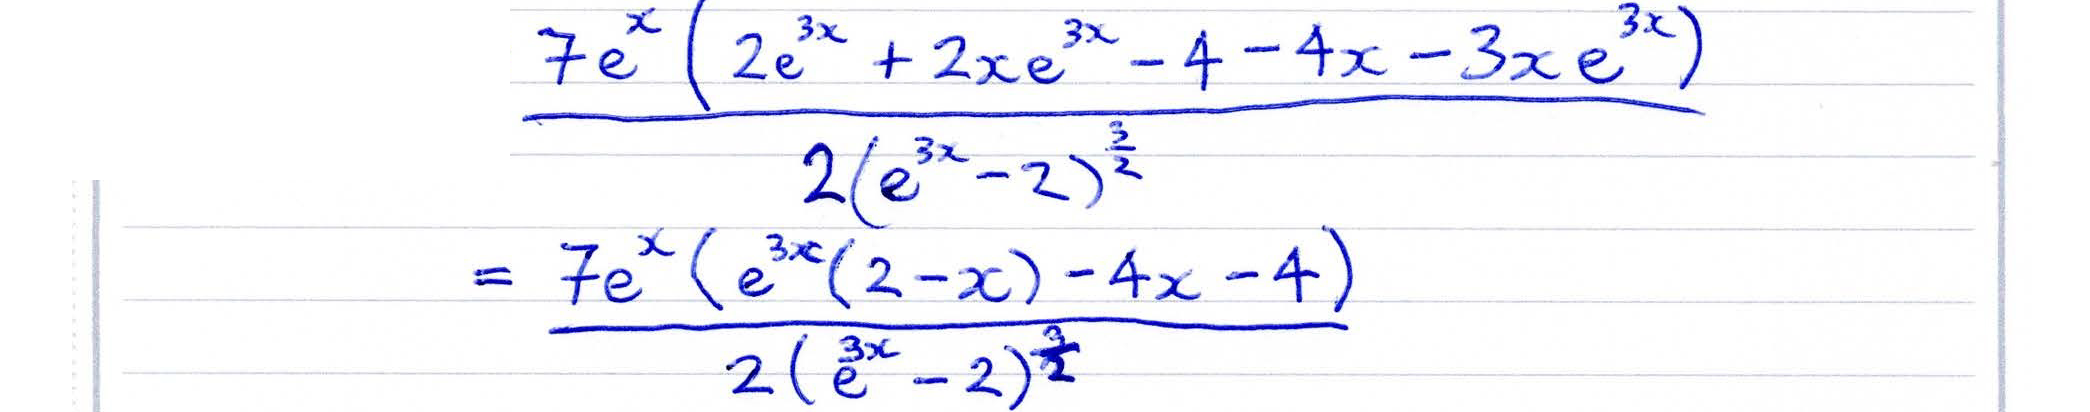 \frac{7e^x(2e^{3x} + 2xe^{3x} - 4 - 4x - 3xe^{3x})}{2(e^{3x} - 2)^{\frac{3}{2}}}
= \frac{7e^x(e^{3x}(2 - x) - 4x - 4)}{2(e^{3x} - 2)^{\frac{3}{2}}}